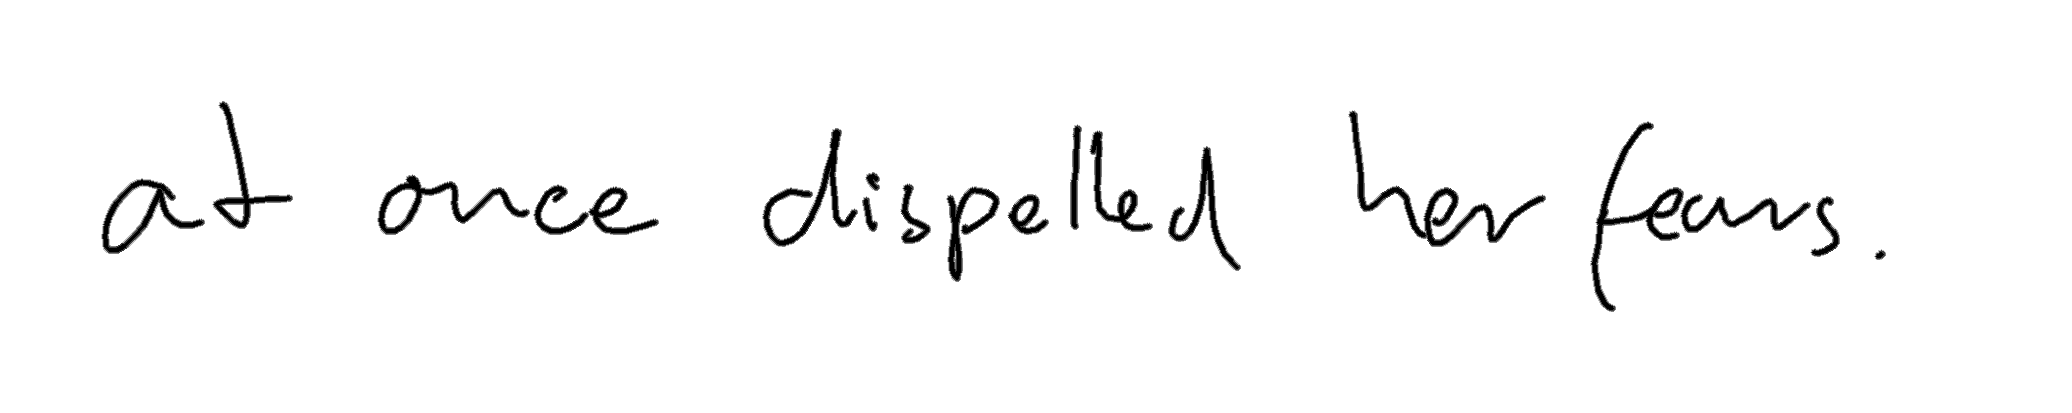 at once dispelled her fears.